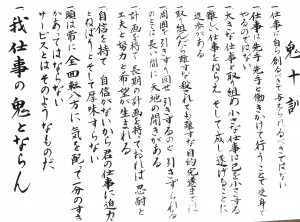 鬼十訓
一仕事は自ら創るべきで与えられるべきではない
一仕事は先手先手と働きかけて行うことで受身でやるのではない
一大きな仕事と取り組め小さな仕事は己を小さくする
一難しい仕事をねらえそして成し遂げるところに進歩がある
一取り組んだら離すな殺されても離すな目的完遂までは
一周囲を引きずり回せ引きずるのと引きずられるのとは長い間に天地の開きがある
一計画を持て長期の計画を持っておれば忍耐と工夫と努力と希望が生まれる
一自信を持て自信がないから君の仕事に迫力もねばりもそして厚味すらない
一頭は常に全回転八方に気を配って一分のすきがあってはならない
サービスとはそのようなものだ
一我仕事の鬼とならん